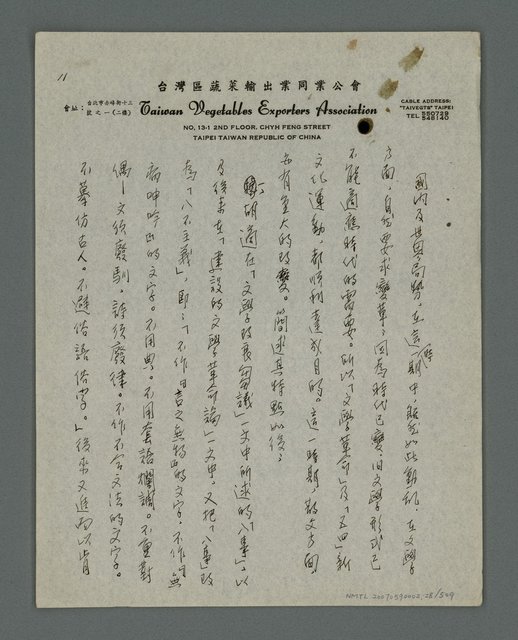 11
台灣區蔬菜輸出業同業公會
會址：台北市赤峰街十三號之一(二樓)
Taiwan Vegetables Exporters Association
CABLE ADDRESS:
"TAIVEGTS" TAIPEI
TEL 550728
548140
NO. 13-1 2ND FLOOR. CHYH FENG STREET
TAIPEI TAIWAN REPUBLIC OF CHINA
國內及世界局勢，在這一時期中，既然如此動亂，在文學
方面，自然要求變革，因為時代已變，旧文學形式已
不能適應時代的需要。所以「文學革命」及「五四」新
文化運動，都順利達成目的。這一時期，散文方面，
亦有重大的改變。簡述其特點如後：
胡適在「文學改良芻議」一文中所述的「八事」，以
及後來在「建設的文學革命論」一文中，又把「八事」改
為「八不主義」，即：「不作言之無物的文字。不作無
病呻吟的文字。不用典。不用套語爛調。不重對
偶—文須廢駢，詩須廢律。不作不合文法的文字。
不摹仿古人。不避俗語俗字。」後來又進而以肯
NMTL 20070590002, 28/509